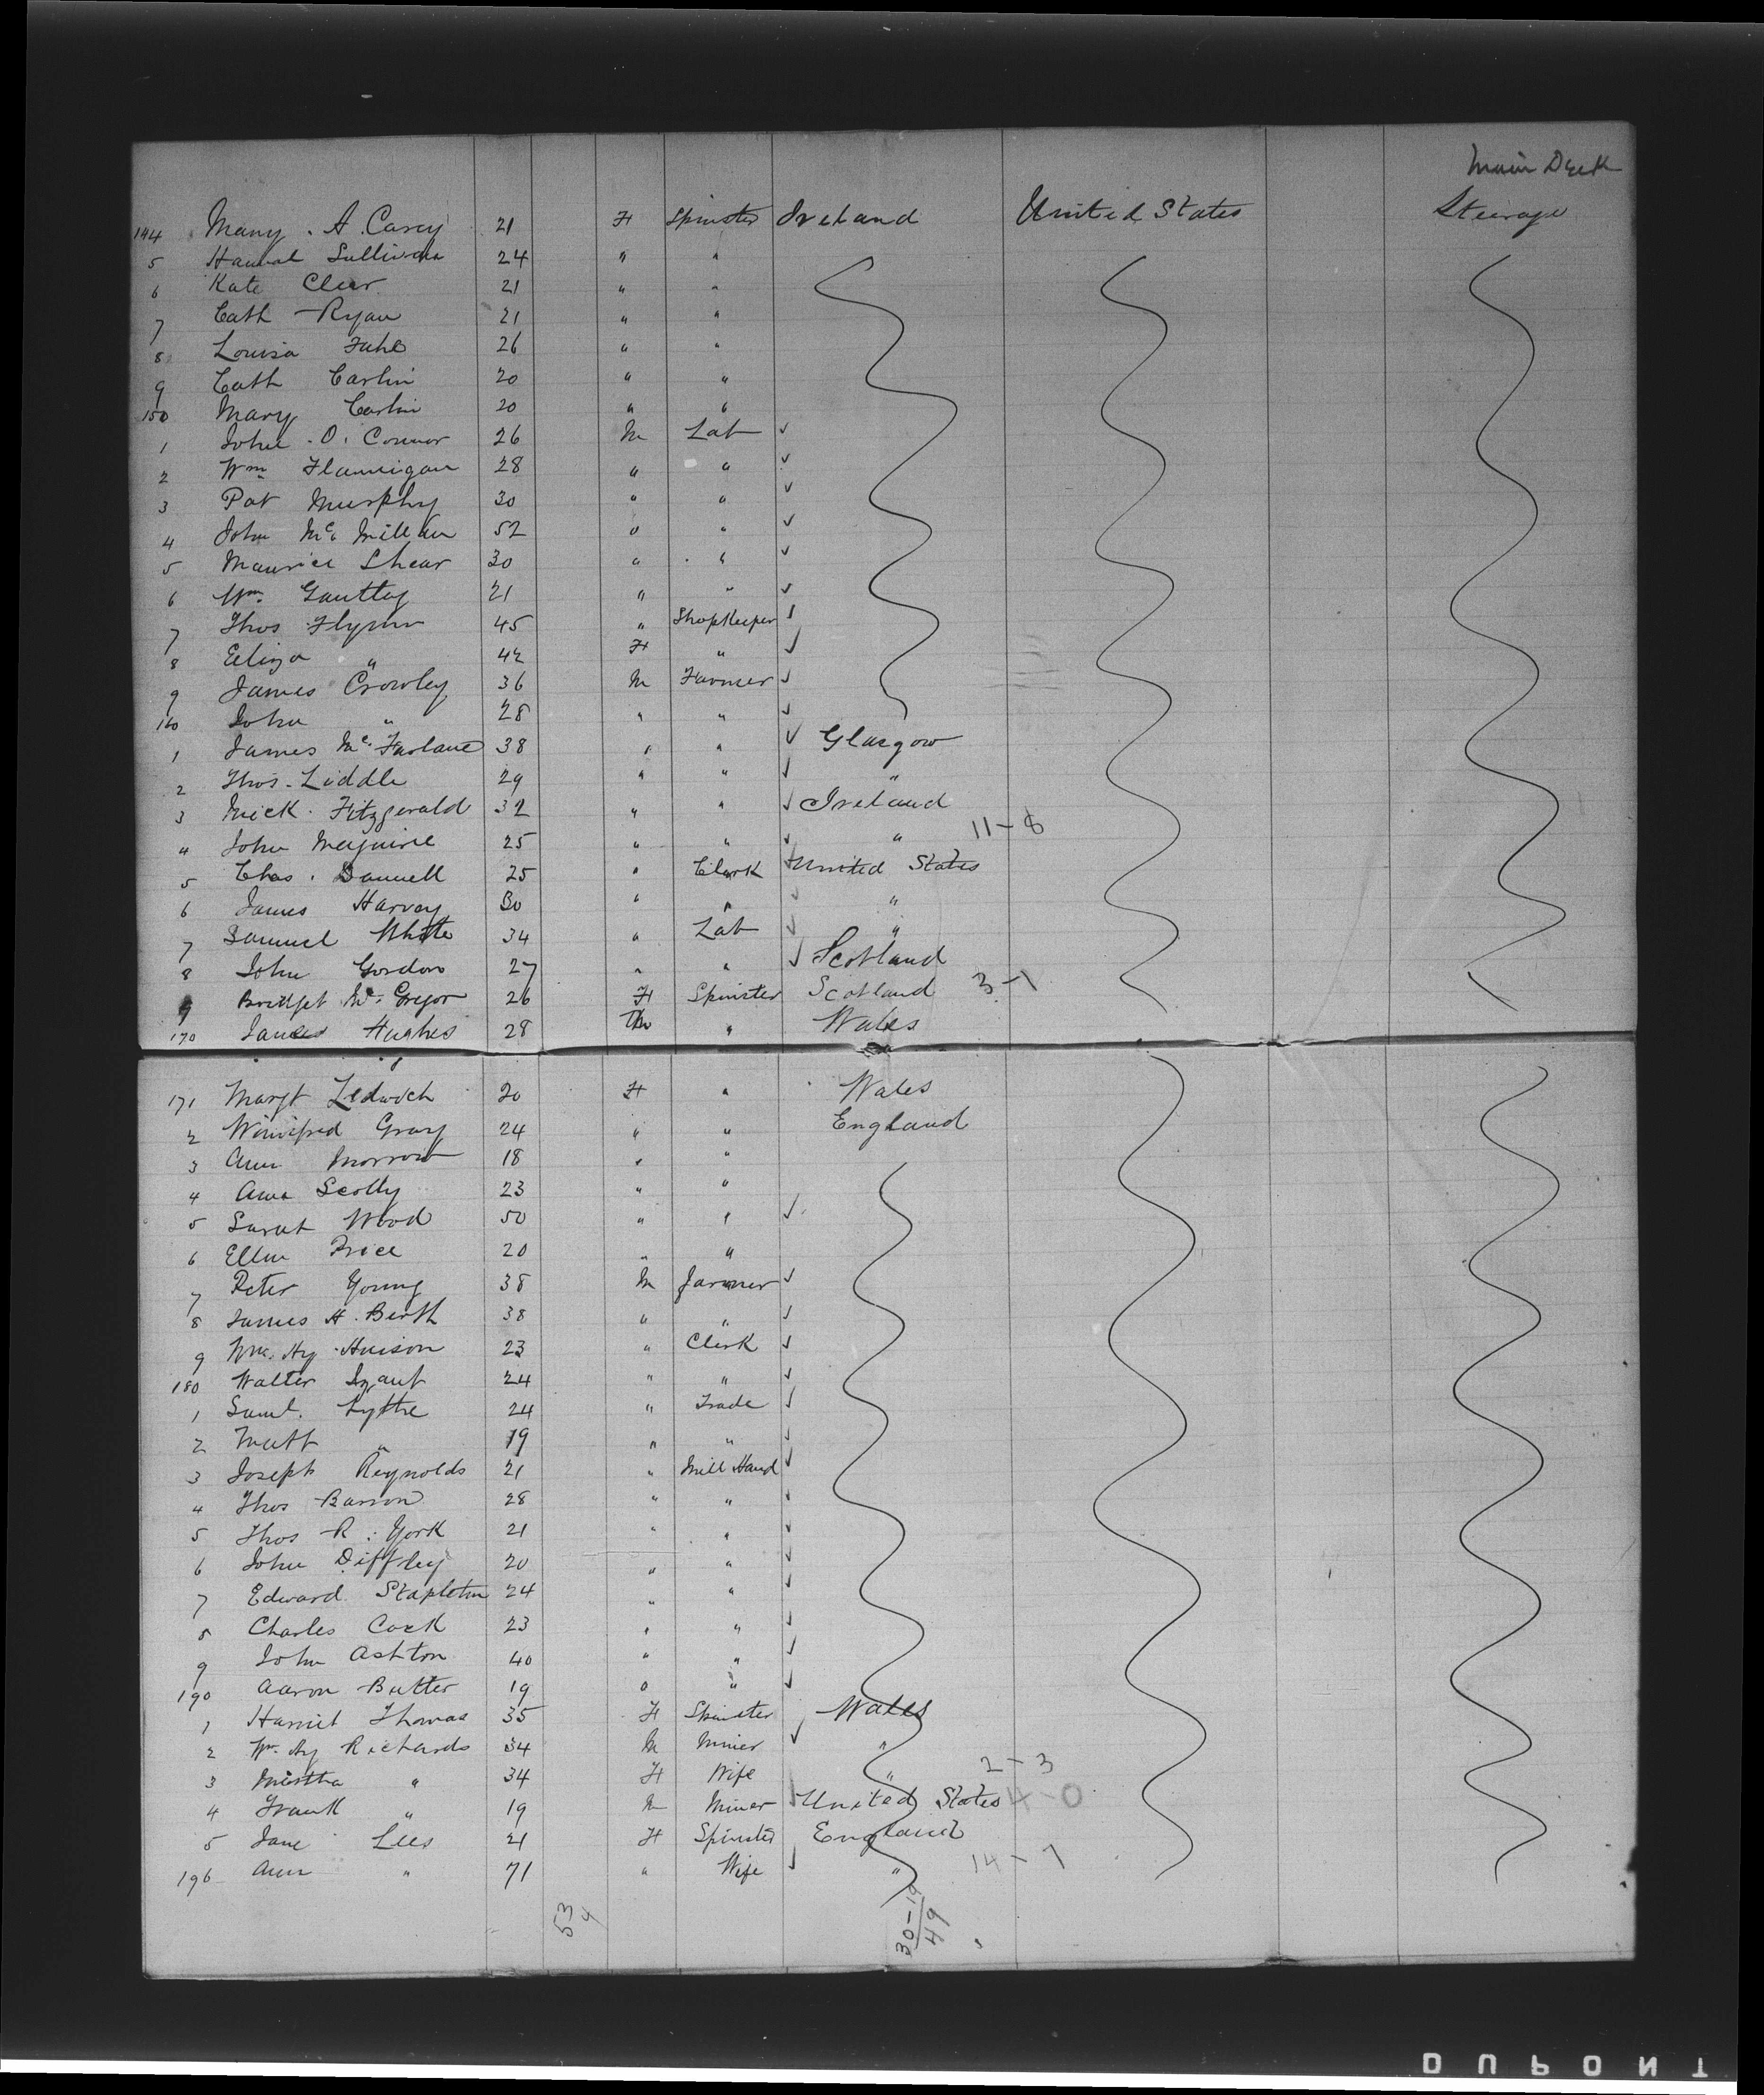 Main Deck
144 Mary A. Carey 21 F Spinster Ireland United States Steerage
5 Hannah Sullivan 24 " "
6 Kate Clear 21 " "
7 Cath Ryan 21 " "
8 Louisa 26 " "
9 Cath Carlin 20 " "
150 Mary Carlin 20 " "
1 John O. Connor 26 M Lab ✓
2 Wm Flannigan 28 " " ✓
3 Pat Murphy 30 " " ✓
4 John Mc Millan 52 " " ✓
5 Maurice Shear 30 " " ✓
6 Wm 21 " " ✓
7 Thos Flynn 45 " Shopkeeper ✓
8 Eliza " 42 F " ✓
9 James Crowley 36 M Farmer ✓
160 John " 28 " " ✓
1 James Mc Farlane 38 " " ✓ Glasgow
2 Thos. Liddle 29 " " ✓ "
3 Mick Fitzgerald 32 " " ✓ Ireland
4 John Maguire 25 " " ✓ " 11-8
5 Chas. Dannell 25 " Clark ✓ United States
6 James Harvey 30 " " ✓ "
7 Samuel White 34 " Lab ✓ "
8 John Gordon 27 " " ✓ Scotland
9 Bridget Mc Gregor 26 F Spinster Scotland 3-1
170 James Hughes 28 M " Wales
171 Margt Ledwich 20 F " Wales
2 Winifred Gray 24 " " England
3 Ann Morrow 18 " "
4 Ann Scolly 23 " "
5 Sarah Wood 50 " " ✓
6 Ellen Price 20 " "
7 Peter Young 38 M Farmer ✓
8 James H. Berth 38 " " ✓
9 Wm. Hy 23 " Clerk ✓
180 Walter 24 " " ✓
1 Saml. Lythe 24 " Trade ✓
2 Matt " 19 " " ✓
3 Joseph Reynolds 21 " Mill Hand ✓
4 Thos Barron 28 " " ✓
5 Thos R. York 21 " " ✓
6 John Diffley 20 " " ✓
7 Edward Stapleton 24 " " ✓
8 Charles Cock 23 " " ✓
9 John Ashton 40 " " ✓
190 Aaron Butter 19 " " ✓
1 Harriet Thomas 35 F Spinster Wales
2 Wm. Hy Richards 34 M Miner ✓ "
3 Martha " 34 F Wife " 2-3
4 Frank " 19 M Miner ✓ United States 4-0
5 Jane Lees 21 F Spinster England
196 Ann " 71 " Wife ✓ " 14-7
53
4
30-19
49
DUPONT